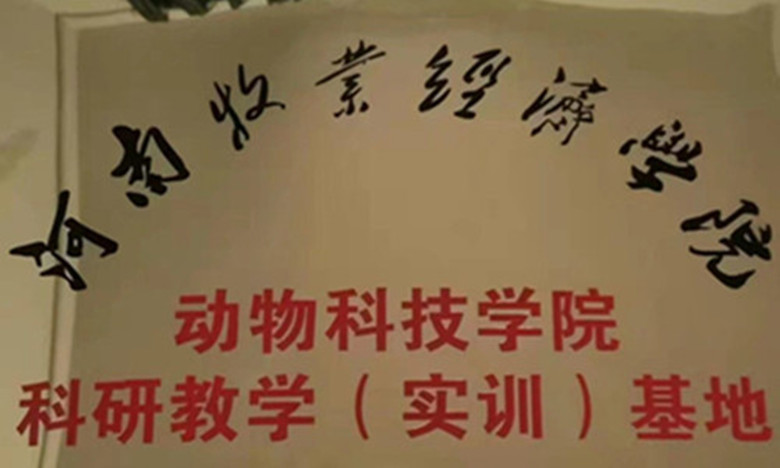 河南牧業經濟學院
动物科技学院
科研教学（实训）基地